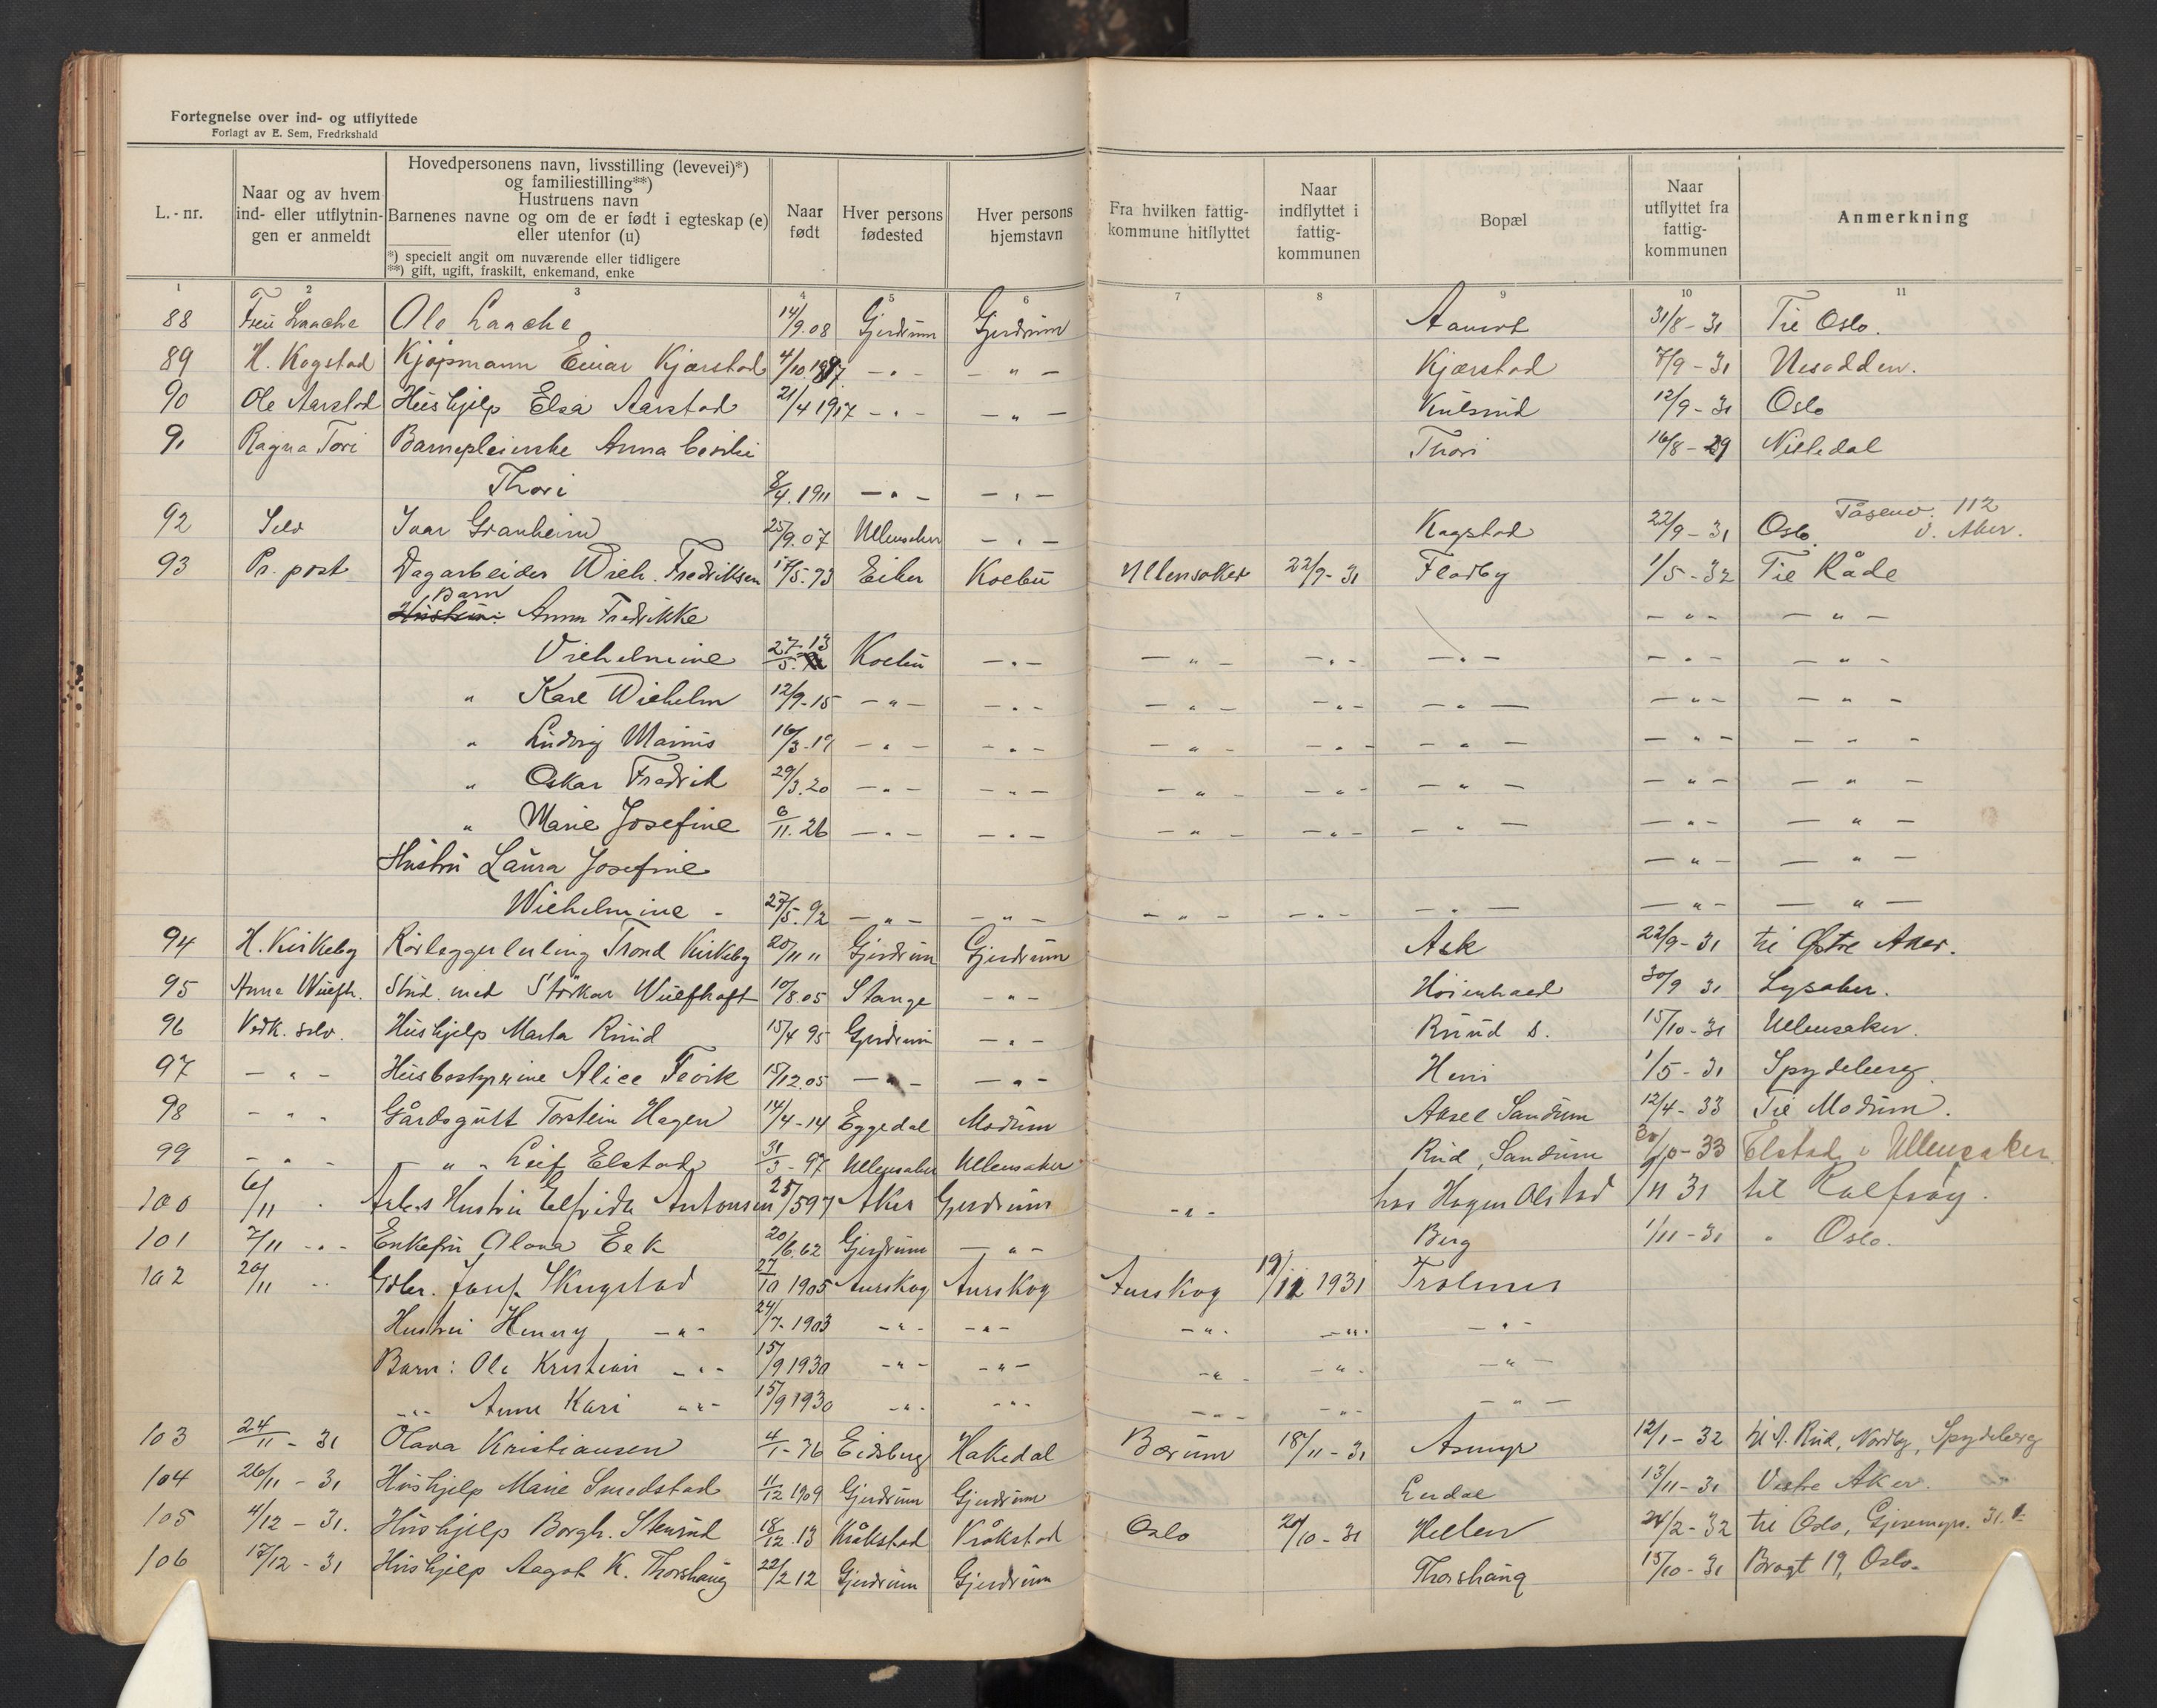 Fortegnelse over ind- og utflyttede
Forlagt av E. Sem, Fredrkshald
L.-nr. | Naar og av hvem ind- eller utflytningen er anmeldt | Hovedpersonens navn, livsstilling (levevei)*) og familiestilling**) Hustruens navn Barnenes navne og om de er født i egteskap (e) eller utenfor (u) *) specielt angit om nuværende eller tidligere **) gift, ugift, fraskilt, enkemand, enke | Naar født | Hver persons fødested | Hver persons hjemstavn | Fra hvilken fattig-kommune hitflyttet | Naar indflyttet i fattig-kommunen | Bopæl | Naar utflyttet fra fattig-kommunen | Anmerkning
1 2 3 4 5 6 7 8 9 10 11
88 Fru Laache Ole Laache 14/9.08 Gjerdrum Gjerdrum 31/8-31 Til Oslo.
89 H. Kogstad Kjøpmann Einar Kjærstad 4/10 - " - - " - Kjærstad 7/9-31 Nesodden.
90 Ole Aarstad Hushjelp Elsa Aarstad 21/4 1917 - " - - " - Kulsrud 12/9-31 Oslo
91 Ragna Tori Barnepleierske Anna Thori 16/8-29 Nittedal
Thori 8/4.1911 - " - - " -
92 Selv Ivar Granheim 25/9.07 Ullensaker - " - Kogstad 22/9-31 Oslo. Tåsenv. 112 V. Aker.
93 Pr. post Dagarbeider Wilh. Fredriksen 17/5.93 Eiker Koebu Ullensaker 22/9-31 Fladby 1/5-32 Til Råde
Barn
Hustru: Anna Fredrikke - " - - " -
Vilhelmine 27/5.13 Koebu - " - - " - - " - - " - - " - - " -
" Karl Wilhelm 12/9-15 - " - - " - - " - - " - - " - - " - - " -
" Ludvig Marius 16/3.17 - " - - " - - " - - " - - " - - " - - " -
" Oskar Fredrik 29/3.20 - " - - " - - " - - " - - " - - " - - " -
" Marie Josefine 6/11.26 - " - - " - - " - - " - - " - - " - - " -
Hustru Laura Josefine - " - - " -
Wilhelmine - 27/5.92 - " - - " - - " - - " - - " - - " - - " -
94 H. Kirkeby Rørleggerlerling Trond Kirkeby 20/11 11 Gjerdrum Gjerdrum Ask 22/9-31 til Østre Aker.
95 Anna Wulfh. Stud. med Störkar Wulfhaft 10/8.05 Stange - " - 30/9 31 Lysaker.
96 Vedk. selv. Hushjelp Marta Ruud 15/4 95 Gjerdrum - " - Ruud s. 15/10-31 Ullensaker.
97 - " - Husbestyrerine Alice Fevik 15/12.05 - " - - " - Heni 1/5-31 Spydeberg.
98 - " - Gårdsgutt Torstein Hagen 14/4-14 Eggedal Modum Aksel Sandum 12/4-33 Til Modum.
99 - " - - " - Leif Elstad 31/3-97 Ullensaker Ullensaker Rud, Sandum 30/10-33 Elstad i Ullensaker
100 6/11 " Arb.s Hustru Elfrida Antonsen 25/5 97 Aker Gjerdrum - " - hos Hagen Olstad 1/11 31 til Rolfsøy.
101 7/11 - " - Enkefru Olava Eek 20/6.62 Gjerdrum - " - Berg 1/11-31 " Oslo.
102 20/11 " Gdbr. Josef Skugstad 27/10 1905 Aurskog Aurskog Aurskog 19/11 1931 Trolsnes
Hustru Henny - " - 24/7-1903 - " - - " - - " - - " - - " -
Barn: Ole Kristian - " - 15/9 1930 - " - - " - - " - - " - - " -
- " - Anne Kari - " - 15/9 1930 - " - - " - - " - - " - - " -
103 24/11-31 Olava Kristiansen 4/1-76 Eidsberg Hakedal Bærum 18/11-31 Asmyr 12/1-32 til A. Rud, Nordby, Spydeberg
104 26/11-31 Hushjelp Marie Smedstad 11/12 1909 Gjerdrum Gjerdrum Endal 13/11-31 Vestre Aker.
105 4/12-31. Hushjelp Borgh. Stensrud 18/12.13 Kråkstad Kråkstad Oslo 24/10-31 Hellen 24/2-32 til Oslo,
106 17/12-31 Hushjelp Aagot K. Thorshaug 22/2 12 Gjerdrum Gjerdrum Thorshaug 15/10-31 Bragt 19, Oslo.